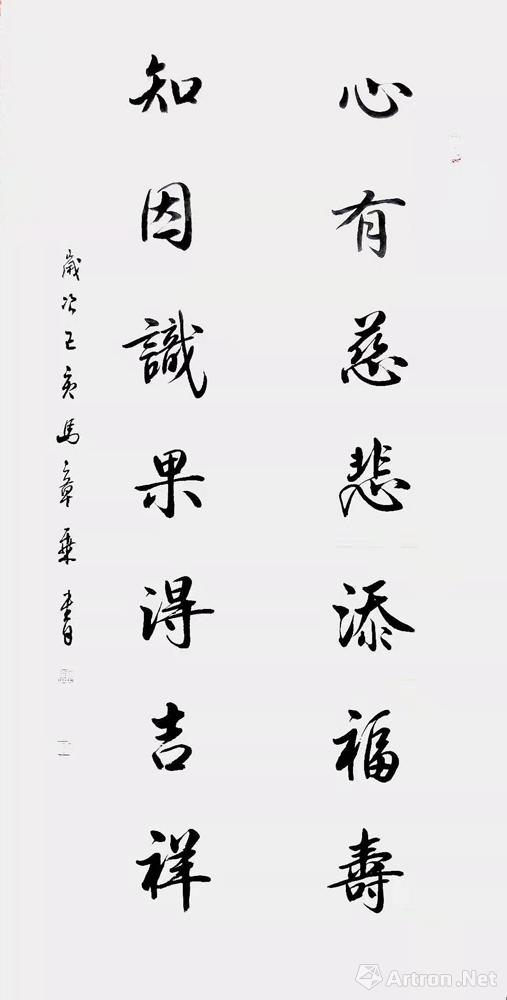 心有慈悲添福壽
知因識果得吉祥
歲次己亥馬章乘書
Artron.Net